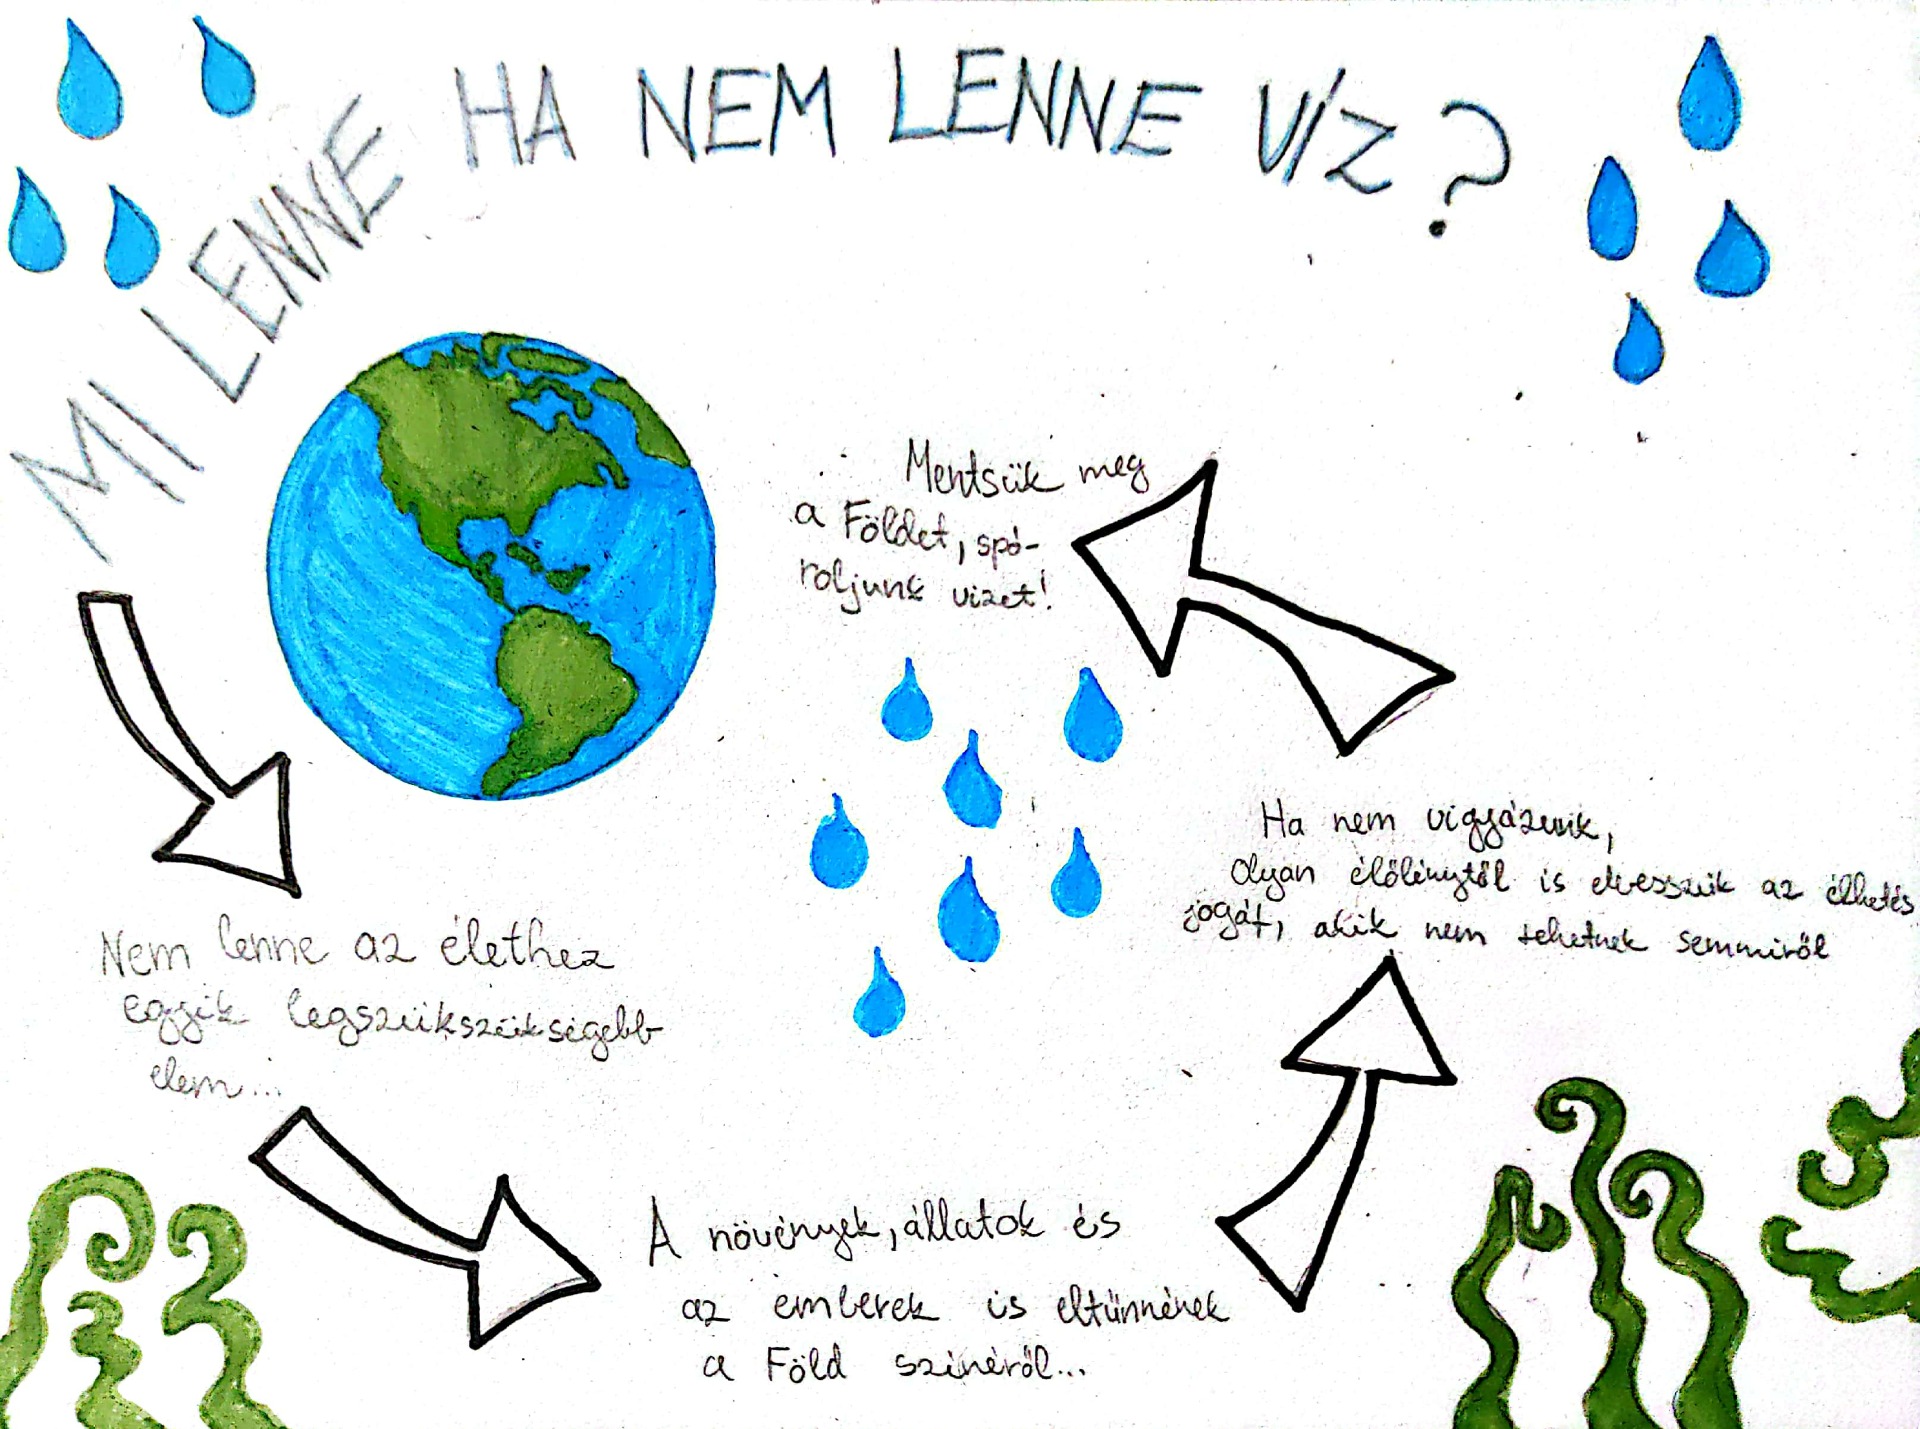 MI LENNE HA NEM LENNE VÍZ?
Nem lenne az élethez
egyik legszükszükségebb
elem...
A növények, állatok és
az emberek is eltűnnének
a Föld színéről...
Ha nem vigyázunk,
olyan élőlénytől is elvesszük az élhetés
jogát, akik nem tehetnek semmiről
Mentsük meg
a Földet, spó-
roljunk vizet!